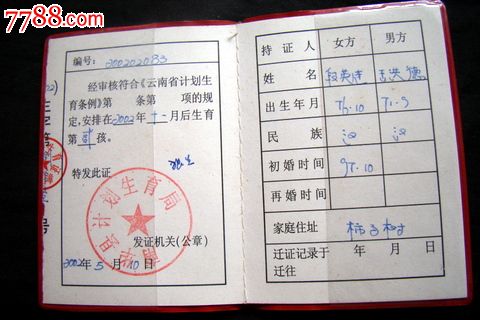 7788.com
编号: 200202083
经审核符合《云南省计划生
育条例》第 条第 项的规
定,安排在2002年十一月后生育
第贰孩。
特发此证
计划生育局
发证机关(公章)
2002年5月10日
持证人 女方 男方
姓名
出生年月 76.10 71.9
民族 汉 汉
初婚时间 95.10
再婚时间
家庭住址 柿子树
迁证记录于 年 月 日
迁往